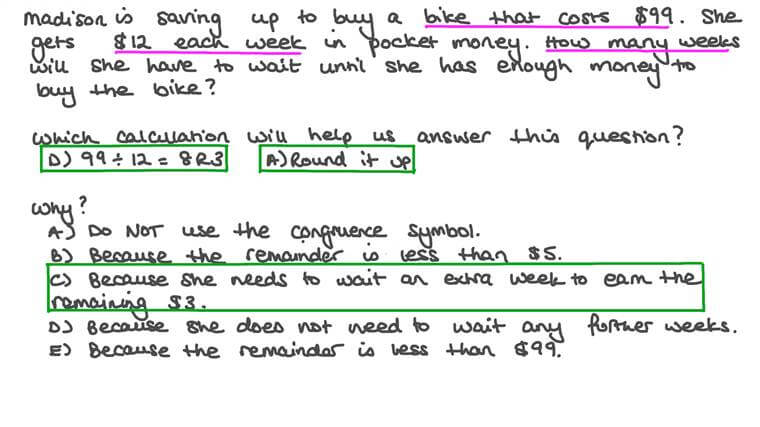 Madison is saving up to buy a bike that costs $99. She
gets $12 each week in pocket money. How many weeks
will she have to wait until she has enough money to
buy the bike?
Which calculation will help us answer this question?
D) 99 ÷ 12 = 8 R3 A) Round it up
Why?
A) Do NOT use the congruence symbol.
B) Because the remainder is less than $5.
C) Because she needs to wait an extra week to earn the
remaining $3.
D) Because she does not need to wait any further weeks.
E) Because the remainder is less than $99.